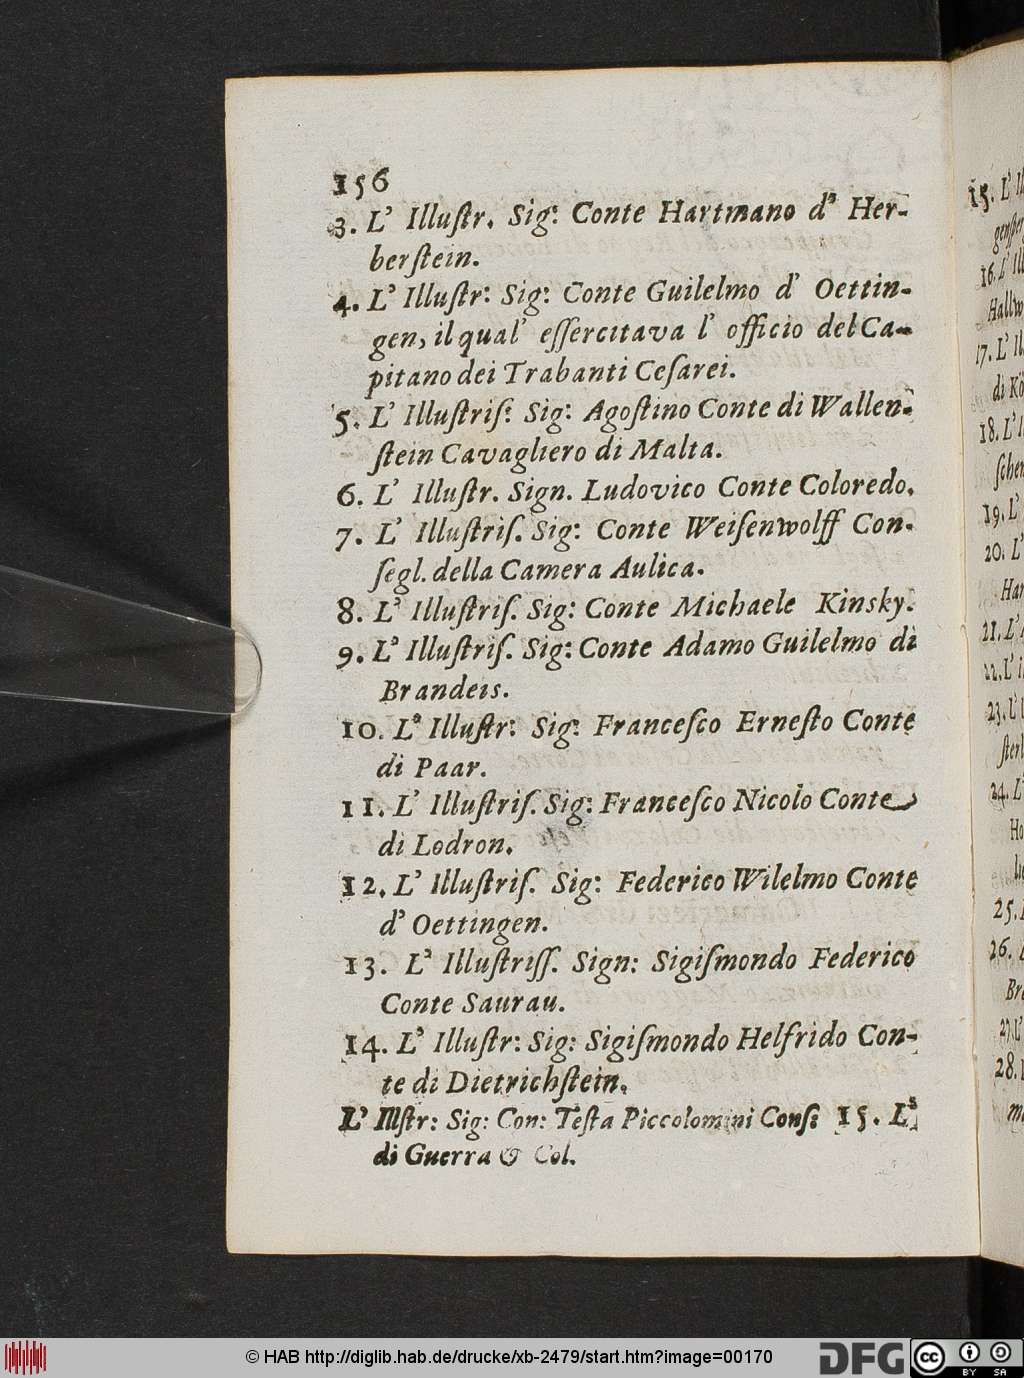 156
3. L' Illuſtr. Sig: Conte Hartmano d' Her-
berſtein.
4. L' Illuſtr: Sig: Conte Guilelmo d' Oettin-
gen, il qual' eſſercitava l' officio del Ca-
pitano dei Trabanti Ceſarei.
5. L' Illuſtriſ: Sig: Agoſtino Conte di Wallen-
ſtein Cavagliero di Malta.
6. L' Illuſtr. Sign. Ludovico Conte Coloredo.
7. L' Illuſtriſ. Sig: Conte Weiſenwolff Con-
ſegl. della Camera Aulica.
8. L' Illuſtriſ. Sig: Conte Michaele Kinsky.
9. L' Illuſtriſ. Sig: Conte Adamo Guilelmo di
Brandeis.
10. L' Illuſtr: Sig: Franceſco Erneſto Conte
di Paar.
11. L' Illuſtriſ. Sig: Franceſco Nicolo Conte
di Lodron.
12. L' Illuſtriſ. Sig: Federico Wilelmo Conte
d' Oettingen.
13. L' Illuſtriſſ. Sign: Sigiſmondo Federico
Conte Saurau.
14. L' Illuſtr: Sig: Sigiſmondo Helfrido Con-
te di Dietrichſtein.
L' Illſtr: Sig: Con: Teſta Piccolomini Conſ: 15. L'
di Guerra & Col.
15. L'
16. L'
Hallw
17. L'
di Kö
18. L'
ſchen
19. L'
20. L'
Har
21. L'
22. L'
23. L'
ſterl
24. L'
Ho
25.
26.
Bre
27. L'
28.
© HAB http://diglib.hab.de/drucke/xb-2479/start.htm?image=00170
DFG
cc
BY SA